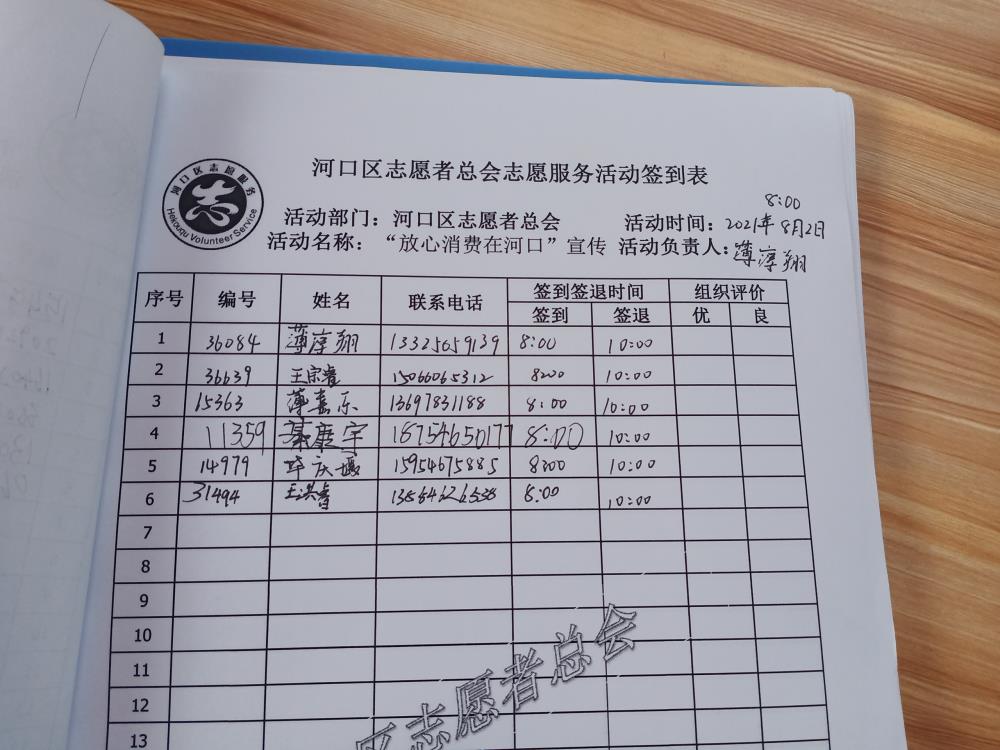 河口区志愿者总会志愿服务活动签到表
河口区志愿服务
Hekouqu Volunteer Service
8:00
活动部门：河口区志愿者总会 活动时间：2021年8月2日
活动名称：“放心消费在河口”宣传 活动负责人：薄淳翔
序号 编号 姓名 联系电话 签到签退时间 组织评价
签到 签退 优 良
1 36084 薄淳翔 13325059139 8:00 10:00
2 36639 王宗睿 15066065312 8:00 10:00
3 15363 薄嘉乐 13697831188 8:00 10:00
4 11359 綦庭宇 18754650177 8:00 10:00
5 14979 毕庆堰 15954675885 8:00 10:00
6 31494 王洪睿 8:00 10:00
7
8
9
10
11
12
13
区志愿者总会